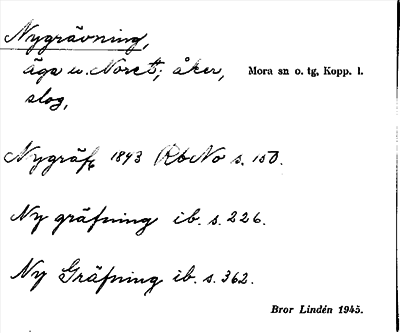 Nygrävning,
äga u. Noret; åker, Mora sn o. tg, Kopp. l.
slog,
Nygräf 1893 RbNo s. 150.
Ny gräfning ib. s. 226.
Ny Gräfning ib. s. 362.
Bror Lindén 1945.